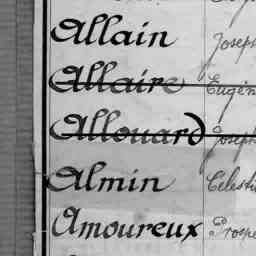 Allain Joseph
Allaire Eugèn
Allouard Joseph
Almin Célesti
Amoureux Prospe